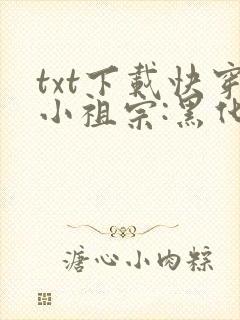 txt下載快穿
小祖宗:黑化
溏心小肉粽